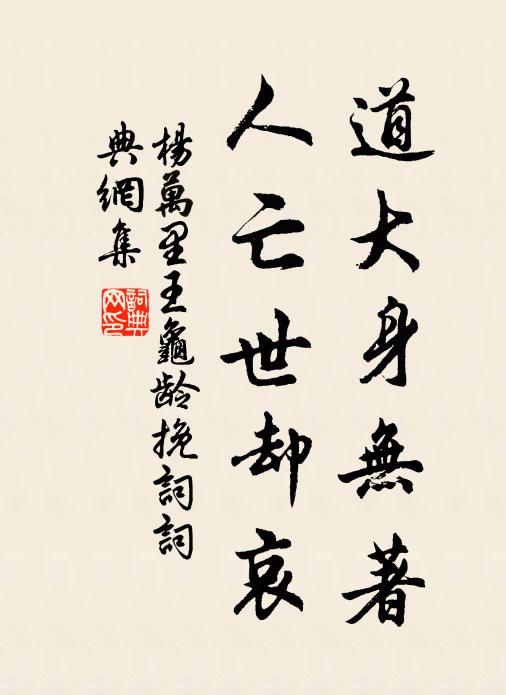 道大身無著
人亡世却哀
楊萬里王龜龄挽詞詞
典網集
詞典
网印